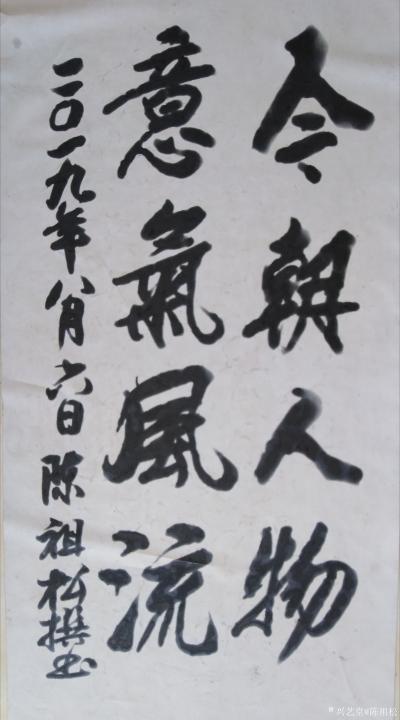 今朝人物
意氣風流
二〇一九年八月六日陈祖松撰书
兴艺堂@陈祖松